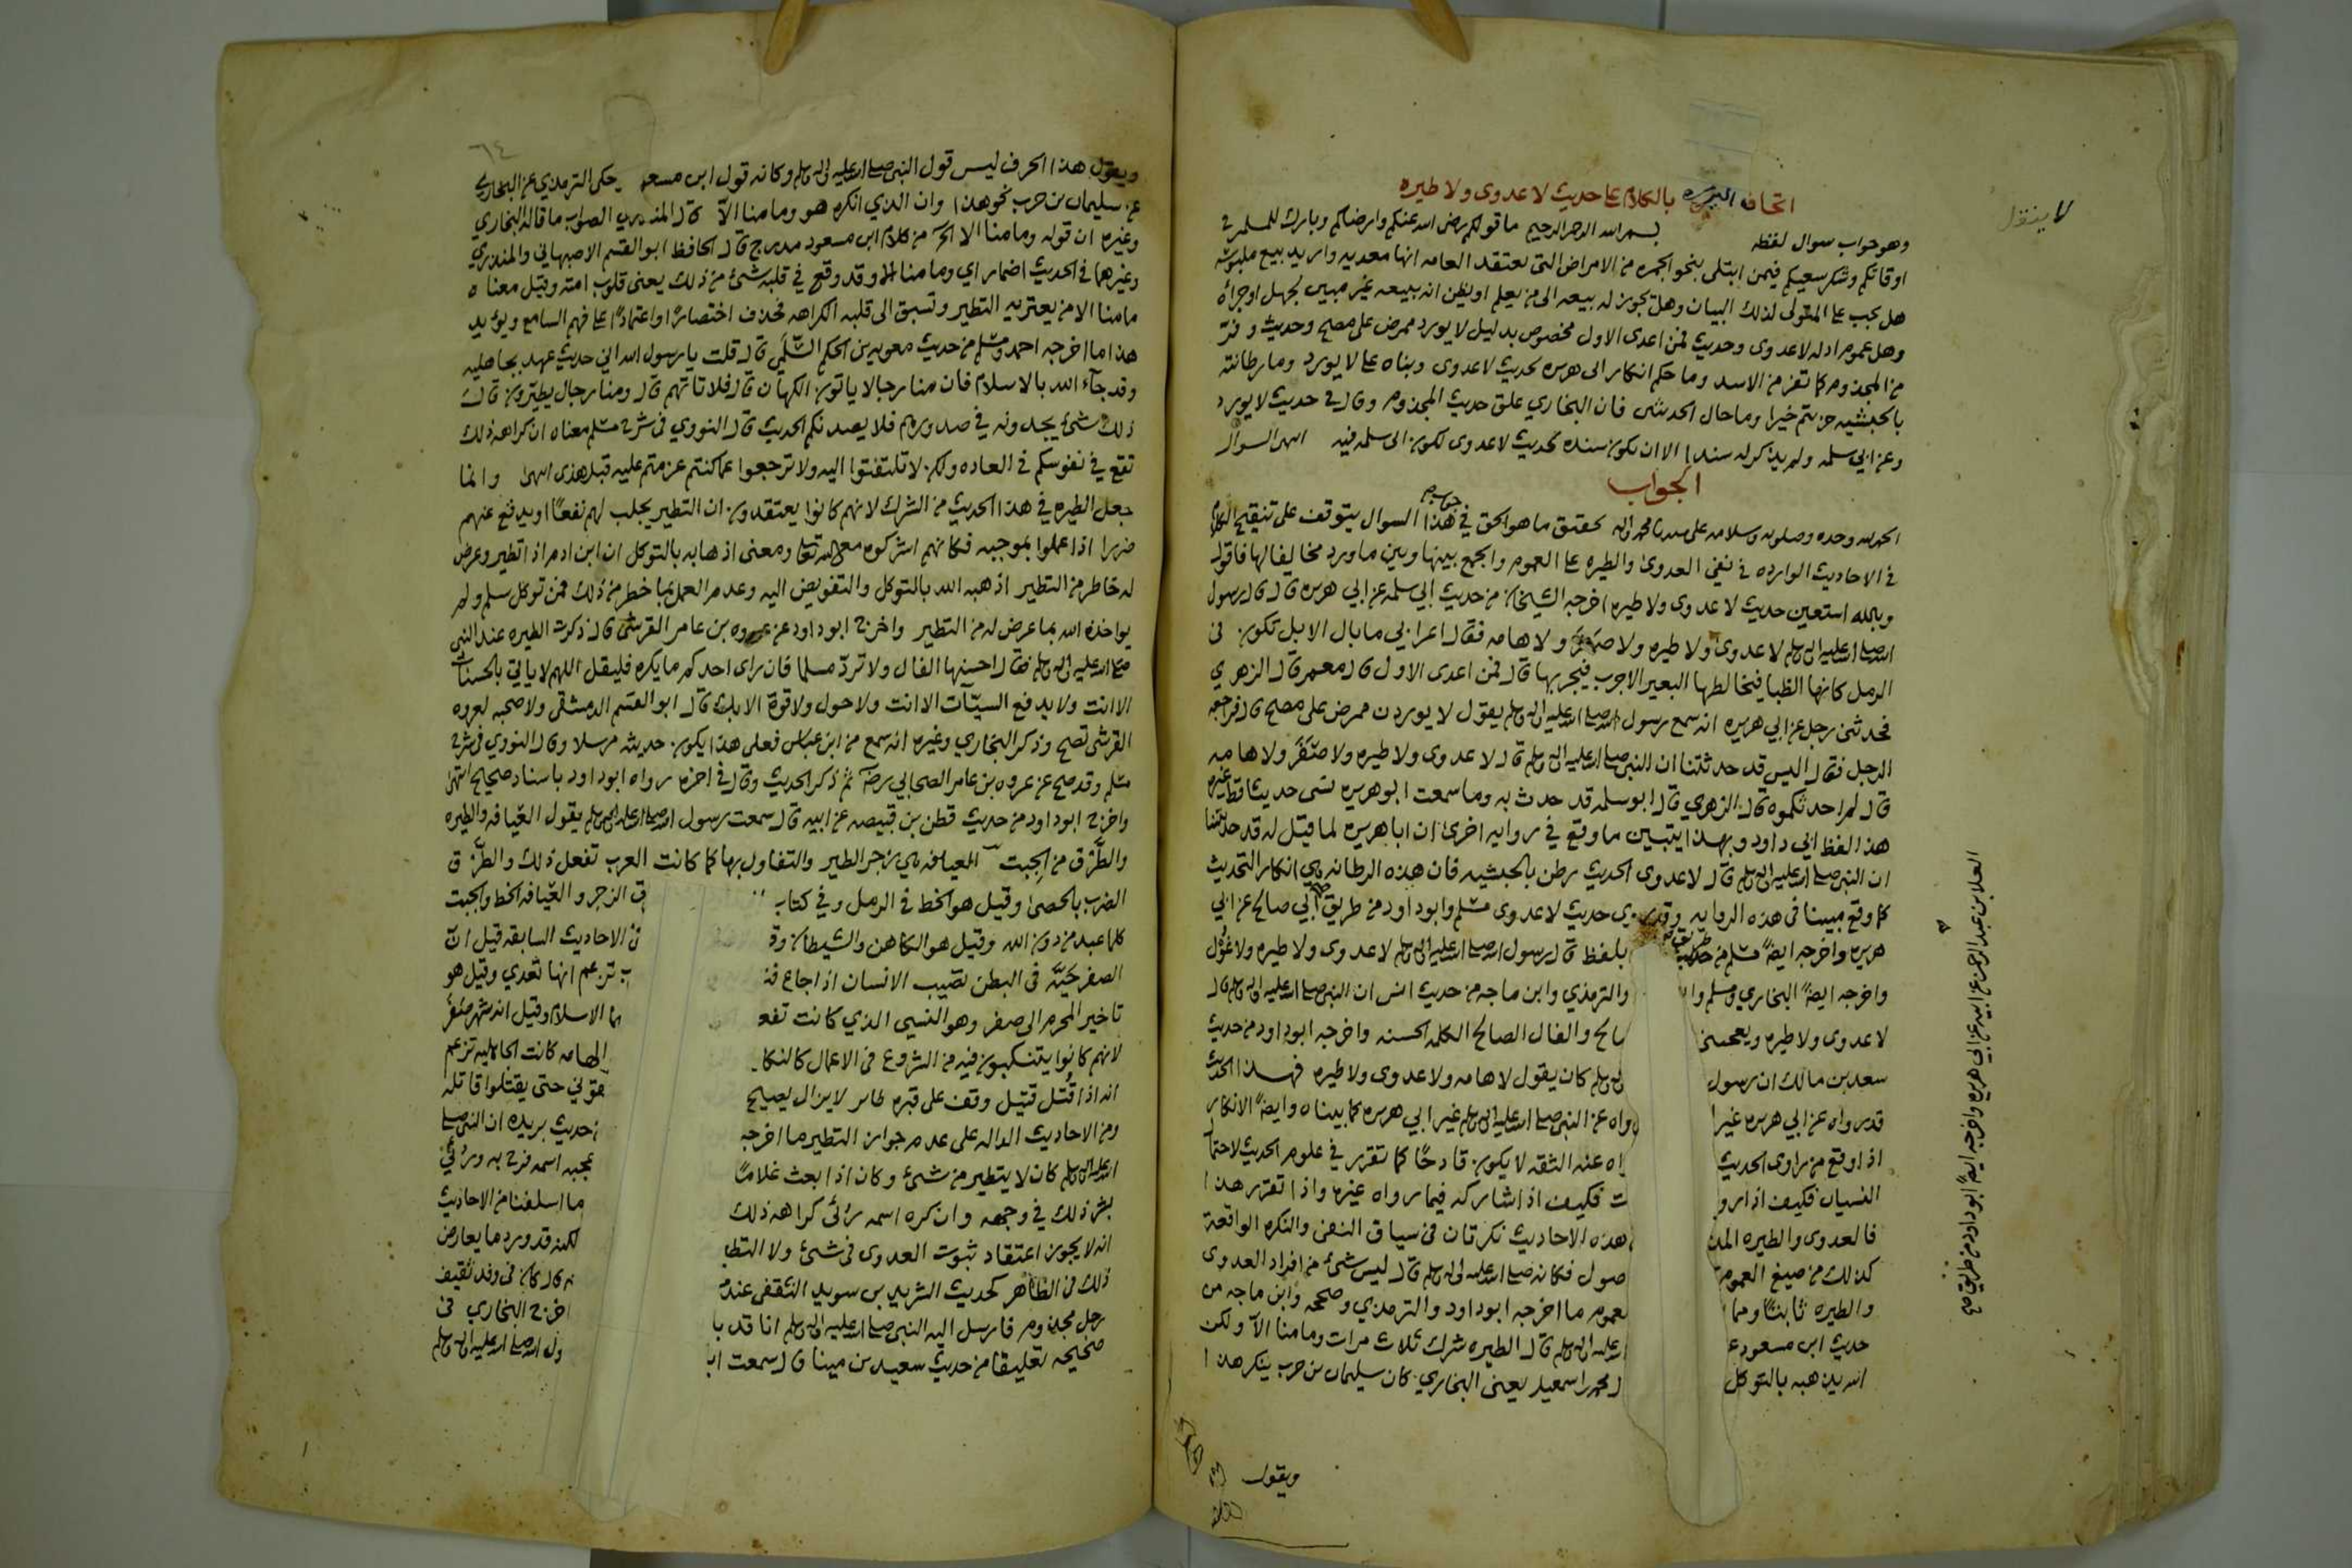 لا ينقل
اتحاف المهره بالكلام على حديث لا عدوى ولا طيره
وهو جواب سوال لفظه بسم الله الرحمن الرحيم ما قولكم رضي الله عنكم وارضاكم وبارك للمسلمين في
اوقاتكم وشكر سعيكم فيمن ابتلى بنحو الجمره من الامراض التي تعتقد العامه انها معديه واريد بيع ملبوسه
هل يجب على المتولى لذلك البيان وهل يجوز له بيعه الى من يعلم او يظن انه يبيعه غير مبين لجهل او جرأه
وهل عموم ادله لا عدوى وحديث فمن اعدى الاول مخصوص بدليل لا يورد ممرض على مصح وحديث وفر
من المجذوم كما تفر من الاسد وما حكم انكار ابى هريره لحديث لا عدوى وبناه على لا يورد وما رطانته
بالحبشيه جزيتم خيرا وما حال الحديثين فان البخاري علق حديث المجذوم وقال في حديث لا يورد
وعن ابي سلمه ولم يذكر له سندا الا ان يكون سنده لحديث لا عدوى لكون ابى سلمه فيه انتهى السوال
الجواب
الحمد لله وحده وصلوته وسلامه على سيدنا محمد واله تحقيق ما هو الحق في جواب هذا السوال يتوقف على تنقيح الكلام
في الاحاديث الوارده في نفي العدوى والطيره على العموم والجمع بينها وبين ما ورد مخالفا لها فاقول
وبالله استعين حديث لا عدوى ولا طيره اخرجه الشيخان من حديث ابي سلمه عن ابي هريره قال قال رسول
الله صلى الله عليه واله وسلم لا عدوى ولا طيره ولا صفر ولا هامه فقال اعرابي ما بال الابل تكون في
الرمل كانها الظبا فيخالطها البعير الاجرب فيجربها قال فمن اعدى الاول قال معمر قال الزهري
فحدثني رجل عن ابي هريره انه سمع رسول الله صلى الله عليه واله وسلم يقول لا يوردن ممرض على مصح قال فراجعه
الرجل فقال اليس قد حدثتنا ان النبي صلى الله عليه واله وسلم قال لا عدوى ولا طيره ولا صَفَرَ ولا هامه
قال لم احدثكموه قال الزهري قال ابو سلمه قد حدث به وما سمعت ابو هريره نسى حديثا قط غيره
هذا لفظ ابي داود وبهذا يتبين ما وقع في روايه اخرى ان ابا هريره لما قيل له قد حدثتنا
ان النبي صلى الله عليه واله وسلم قال لا عدوى الحديث رطن بالحبشيه فان هذه الرطانه هي انكار التحديث
كما وقع مبينا في هذه الروايه وقد روى حديث لا عدوى مسلم وابو داود من طريق ابي صالح عن ابي
هريره واخرجه ايضاً مسلم من طريق بلفظ قال رسول الله صلى الله عليه واله وسلم لا عدوى ولا طيره ولا غُوْل
واخرجه ايضاً البخاري ومسلم وا والترمذي وابن ماجه من حديث انس ان النبي صلى الله عليه واله وسلم قال
لا عدوى ولا طيره ويعجبني الح والفال الصالح الكلمه الحسنه واخرجه ابو داود من حديث
سعد بن مالك ان رسول له وسلم كان يقول لا هامه ولا عدوى ولا طيره فهذا الحديث
قد رواه عن ابي هريره غير ا رواه عن النبي صلى الله عليه واله وسلم غير ابي هريره كما بيناه وايضاً الانكار
اذا وقع من راوى الحديث اه عنه الثقه لا يكون قادحًا كما تقرر في علوم الحديث لاحتمال
النسيان فكيف اذا رو ت فكيف اذا شاركه فيما رواه غيره واذا تقرر هذا
فالعدوى والطيره المذ هذه الاحاديث نكرتان في سياق النفي والنكره الواقعة
كذلك من صيغ العموم صول فكانه صلى الله عليه واله وسلم قال ليس شئ من افراد العدوى
والطيره ثابتًا ومما لعموم ما اخرجه ابو داود والترمذي وصححه وابن ماجه من
حديث ابن مسعود ع الله عليه واله وسلم قال الطيره شرك ثلاث مرات وما منا الا ولكن
الله يذهبه بالتوكل ل محمد اسمعيل يعني البخاري كان سليمان بن حرب ينكر هذا
ويقول
العلا بن عبد الرحمن عن ابيه عن ابي هريره واخرجه ايضاً ابو داود من طريق صح
٦٤
ويقول هذا الحرف ليس قول النبي صلى الله عليه واله وسلم وكانه قول ابن مسعود وحكى الترمذي عن البخاري
عن سليمان بن حرب نحو هذا وان الذي انكره هو وما منا الاّ قال المنذري الصواب ما قاله البخاري
وغيره ان قوله وما منا الا الخ من كلام ابن مسعود مدرج قال الحافظ ابو القسم الاصبهاني والمنذري
وغيرهما في الحديث اضمار اي وما منا الا وقد وقع في قلبه شئ من ذلك يعني قلوب امته وقيل معناه
ما منا الا من يعتريه التطير وتسبق الى قلبه الكراهه فحذف اختصارًا واعتمادًا على فهم السامع ويؤيد
هذا ما اخرجه احمد ومسلم من حديث معويه بن الحكم السُّلَمي قال قلت يا رسول الله اني حديث عهد بجاهليه
وقد جآء الله بالاسلام فان منا رجالا ياتون الكهان قال فلا تاتهم قال ومنا رجال يطيّرون قال
ذلك شئ يجدونه في صدورهم فلا يصدنكم الحديث قال النووي في شرح مسلم معناه ان كراهه ذلك
تقع في نفوسكم في العاده ولكن لا تلتفتوا اليه ولا ترجعوا عما كنتم عزمتم عليه قبل هذى انتهى وانما
جعل الطيره في هذا الحديث من الشرك لانهم كانوا يعتقدون ان التطير يجلب لهم نفعًا او يدفع عنهم
ضررا اذا عملوا بموجبه فكانهم اشركوه مع الله تعالى ومعنى اذهابه بالتوكل ان ابن ادم اذا تطير وعرض
له خاطر من التطير اذهبه الله بالتوكل والتفويض اليه وعدم العمل بما خطر من ذلك فمن توكل سلم ولم
يواخذه الله بما عرض له من التطير واخرج ابو داود عن عروه بن عامر القرشي قال ذكرت الطيره عند النبي
صلى الله عليه واله وسلم فقال احسنها الفال ولا تردّ مسلما فان راى احدكم ما يكره فليقل اللهم لا ياتي بالحسنات
الا انت ولا يدفع السيّآت الا انت ولا حول ولا قوة الا بك قال ابو القسم الدمشقي ولا صحبه لعروه
القرشي تصح وذكر البخاري وغيره انه سمع من ابن عباس فعلى هذا يكون حديثه مرسلا وقال النووي في شرح
مسلم وقد صح عن عروه بن عامر الصحابي رضه ثم ذكر الحديث وقال في اخره رواه ابو داود باسناد صحيح انتهى
واخرج ابو داود من حديث قطن بن قبيصه عن ابيه قال سمعت رسول الله صلى الله عليه واله وسلم يقول العيّافه والطيره
والطَّرْق من الجبت العيافه هي زجر الطير والتفاول بها كما كانت العرب تفعل ذلك والطَّرْق
الضرب بالحصى وقيل هو الخط في الرمل وفي كتاب ق الزجر والعيّافه الخط والجبت
كلما عبد من دون الله وقيل هو الكاهن والشيطان وق في الاحاديث السابقه قيل انّ
الصفر حَيَّه في البطن تصيب الانسان اذا جاع ب تزعم انها تعدي وقيل هو
تاخير المحرم الى صفر وهو النسي الذي كانت تفع الاسلام وقيل انه شهر صَفَرْ
لانهم كانوا يتنكبون فيه من الشروع في الاعمال كالنكا الهامه كانت الجاهليه تزعم
انه اذا قُتل قتيل وقف على قبره طاير لا يزال يصيح قوني حتى يقتلوا قاتله
ومن الاحاديث الداله على عدم جواز التطير ما اخرجه حديث بريده ان النبي صلى
الله عليه واله وسلم كان لا يتطير من شئ وكان اذا بعث غلامًا عجبه اسمه فرح به ورئي
بشر ذلك في وجهه وان كره اسمه رُئى كراهه ذلك ما اسلفنا من الاحاديث
انه لا يجوز اعتقاد ثبوت العدوى في شئ ولا التط لكنه قد ورد ما يعارض
ذلك في الظاهر كحديث الشريد بن سويد الثقفي عند قال كان في وفد ثقيف
رجل مجذوم فارسل اليه النبي صلى الله عليه واله وسلم انا قد با اخرج البخاري في
صحيحه تعليقا من حديث سعيد بن مينا قال سمعت اب ول الله صلى الله عليه واله وسلم